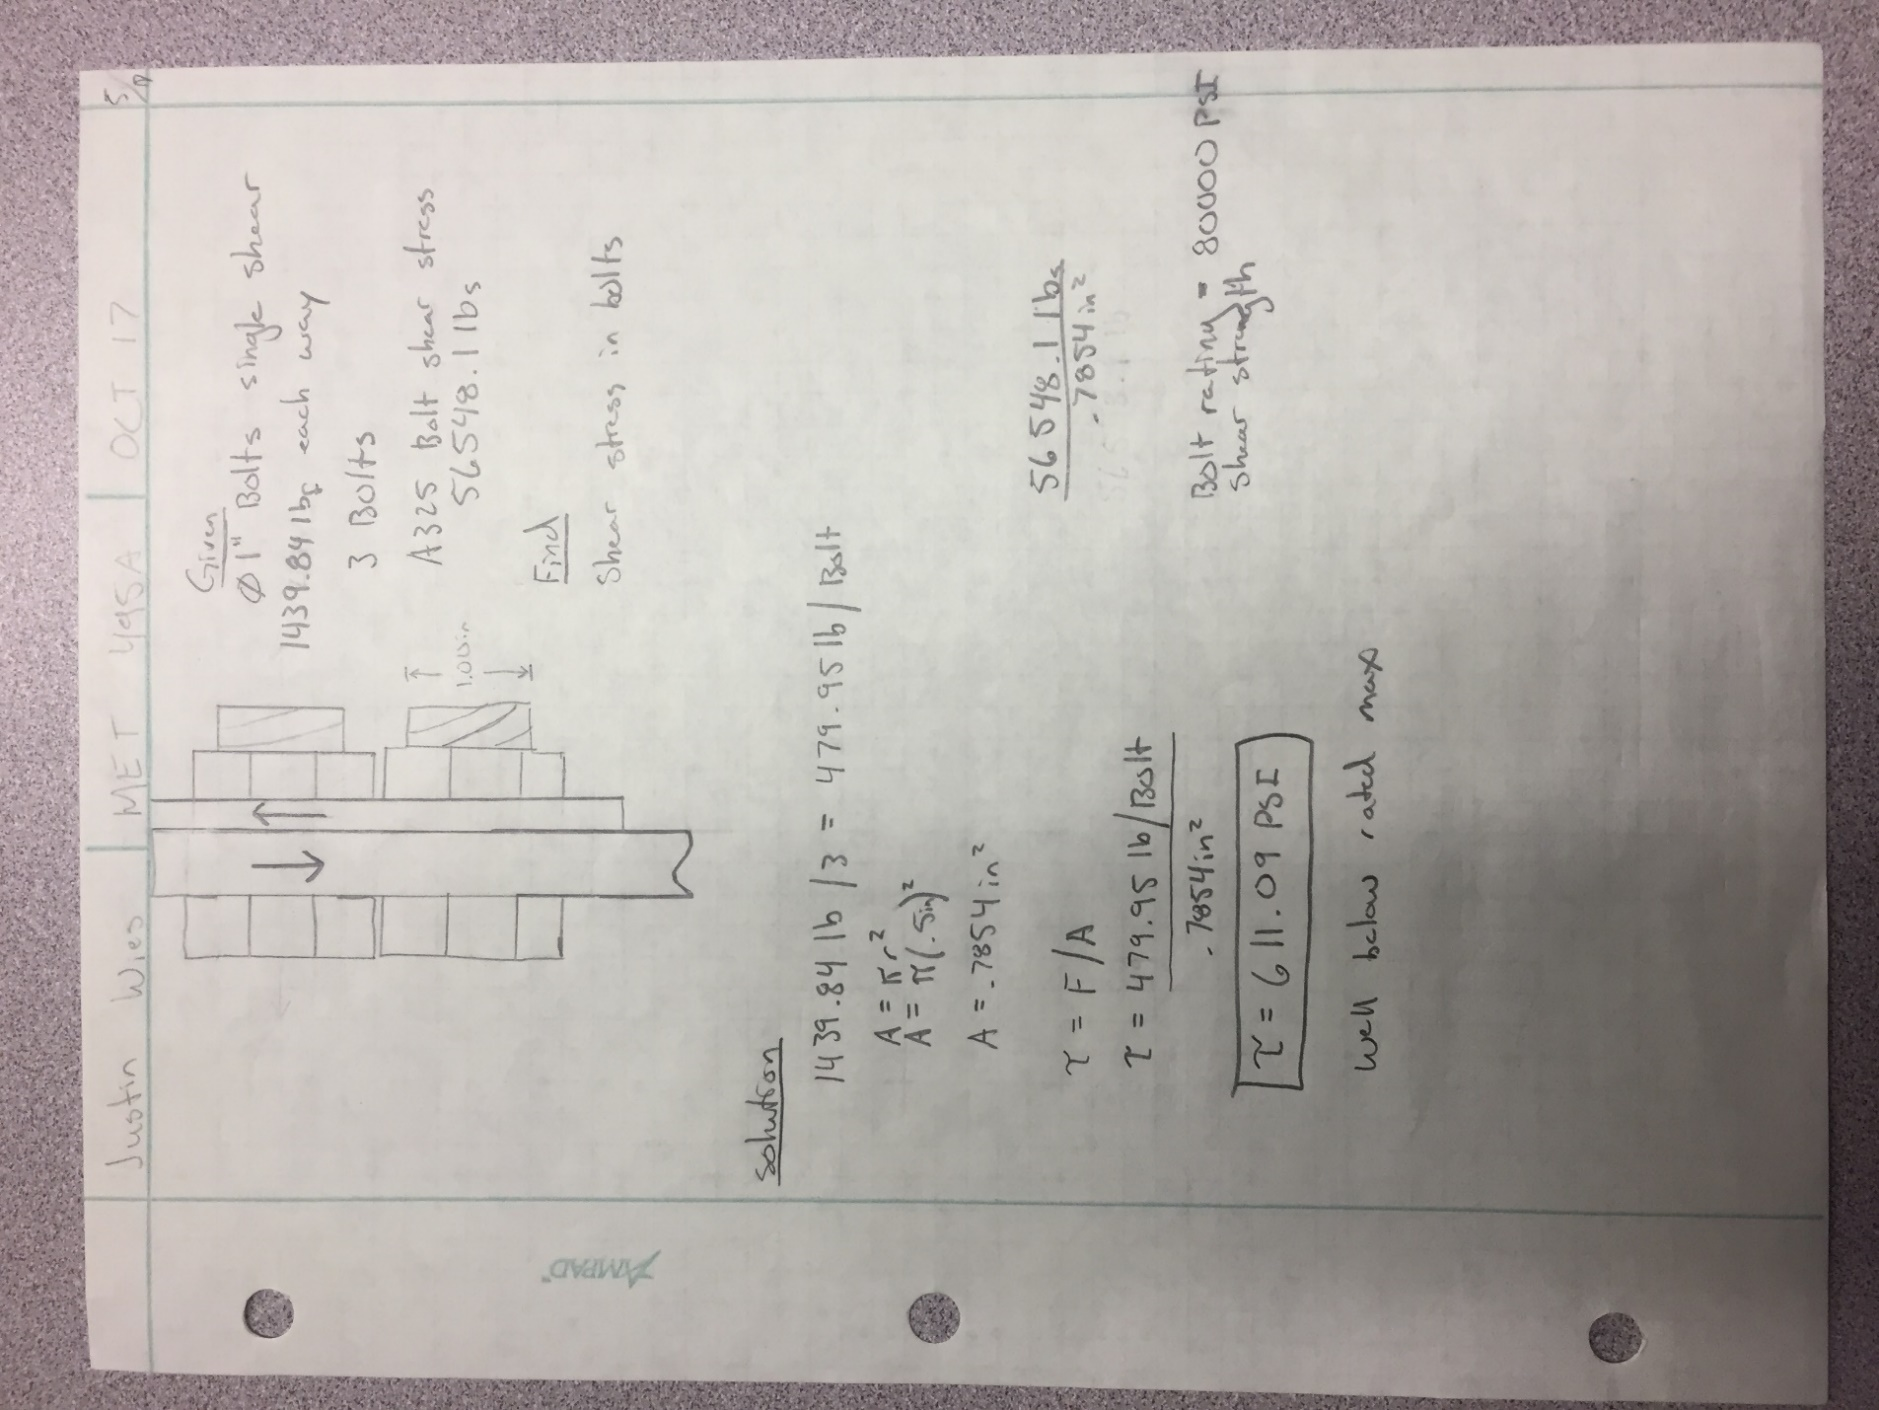 Justin Wies | MET 495A | OCT 17
Given
Ø 1" Bolts single shear
1439.84 lbf each way
3 Bolts
A325 Bolt shear stress
56548.1 lbs
1.00in
Find
Shear stress in bolts
Solution
1439.84 lb / 3 = 479.95 lb / Bolt
A = π r²
A = π (.5in)²
A = .7854 in²
τ = F/A
τ = 479.95 lb / Bolt
.7854in²
τ = 611.09 PSI
Well below rated max
56548.1 lbs
.7854 in²
Bolt rating = 80000 PSI
Shear strength
AMPAD